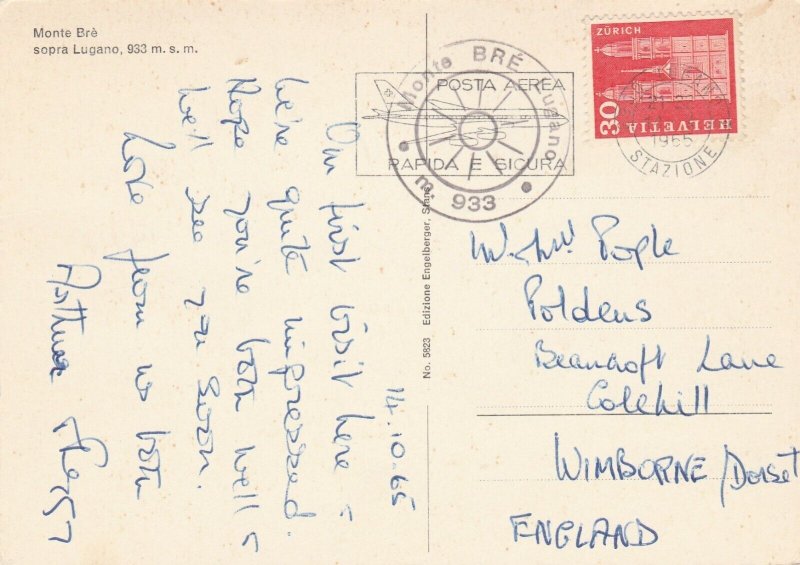 Monte Brè
sopra Lugano, 933 m. s. m.
14.10.65
Our first visit here &
we're quite impressed.
Hope you're both well &
we'll see you soon.
Love from us both
Arthur &
No. 5823 Edizione Engelberger, Stans
POSTA AEREA
RAPIDA E SICURA
Monte BRÉ Lugano
m. 933
1965
STAZIONE
ZÜRICH
30
HELVETIA
Mr & Mrs Pople
Poldens
Beaucroft Lane
Colehill
WIMBORNE / Dorset
ENGLAND